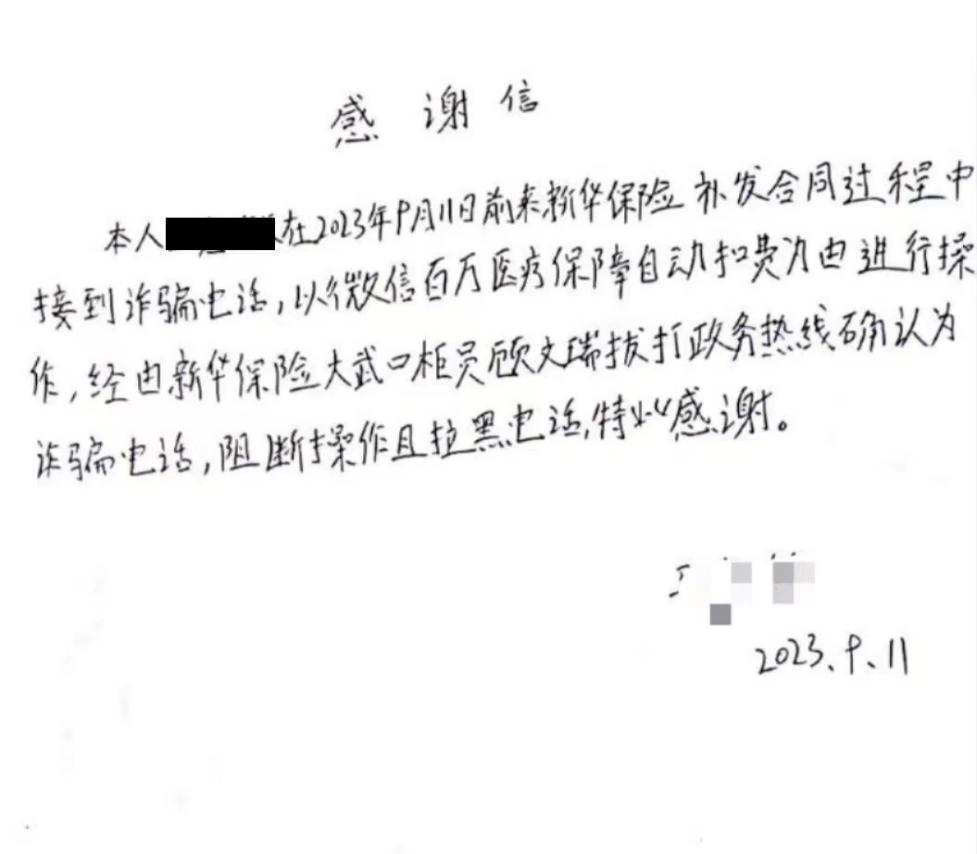 感谢信
本人在2023年9月11日前来新华保险补发合同过程中
接到诈骗电话,以微信百万医疗保障自动扣费为由进行操
作,经由新华保险大武口柜员顾文瑞拔打政务热线确认为
诈骗电话,阻断操作且拉黑电话,特此感谢。
2023.9.11